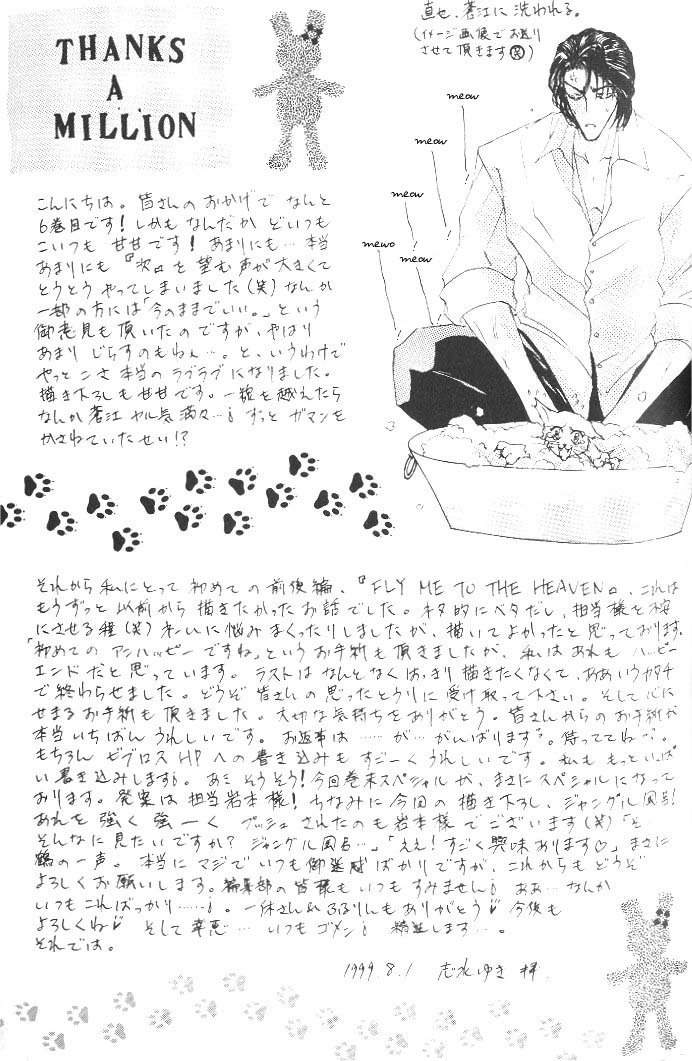 THANKS
A
MILLION
直せ、蒼江に洗われる。
(イメージ画像でお送り
させて頂きます(笑))
meow
meow
meow
mewo
meow
こんにちは。皆さんのおかげで なんと
6巻目です!しかも なんだか どいつも
こいつも 甘甘です! あまりにも… 本当
あまりにも 『次』を望む声が大きくて
とうとう やってしまいました(笑)なんか
一部の方には「今のままでいい。」という
御意見も頂いたのですが、やはり
あまり じらすのもねぇ…。と、いうわけで
やっとこさ本当のラブラブになりました。
描き下ろしも甘甘です。一線を越えたら
なんか 蒼江 ヤル気満々…! ずっと ガマンを
かさねていたせい!?
それから私にとって 初めての前後編、『FLY ME TO THE HEAVEN』。これは
もうずっと 以前から 描きたかったお話でした。ネタ的にベタだし、担当様を不安
にさせる程(笑) 大いに悩みまくったりしましたが、描いてよかったと思っております。
「初めての アンハッピーですね」というお手紙も頂きましたが、私はあれも ハッピー
エンドだと思っています。ラストは なんとなく はっきり描きたくなくて、ああいうカタチ
で終わらせました。どうぞ 皆さんの思ったとうりに受け取って下さい。そして心に
せまるお手紙も頂きました。大切な気持ちをありがとう。皆さんからのお手紙が
本当いちばん うれしいです。お返事は …… が… がんばります。待っててね…。
もちろん ビブロスHPへの書き込みも すごーくうれしいです。私も もっといっぱ
い書き込みします。あ、そうそう!今回巻末スペシャルが、まさにスペシャルになって
おります。発案は担当岩本様!ちなみに今回の描き下ろし、ジャングル風呂!
あれを 強く 強ーく プッシュされたのも岩本様でございます(笑)「え
そんなに見たいですか? ジャングル風呂…」「ええ!すごく興味あります♡」まさに
鶴の一声。本当にマジでいつも御迷惑ばかりですが、これからもどうぞ
よろしくお願いします。編集部の皆様もいつもすみません! ああ… なんか
いつもこればっかり……!。一休さん& ふるりんもありがとう♡ 今後も
よろしくね♡ そして 幸恵… いつもゴメン! 精進します…。
それでは。
1999.8.1 志水ゆき 拝